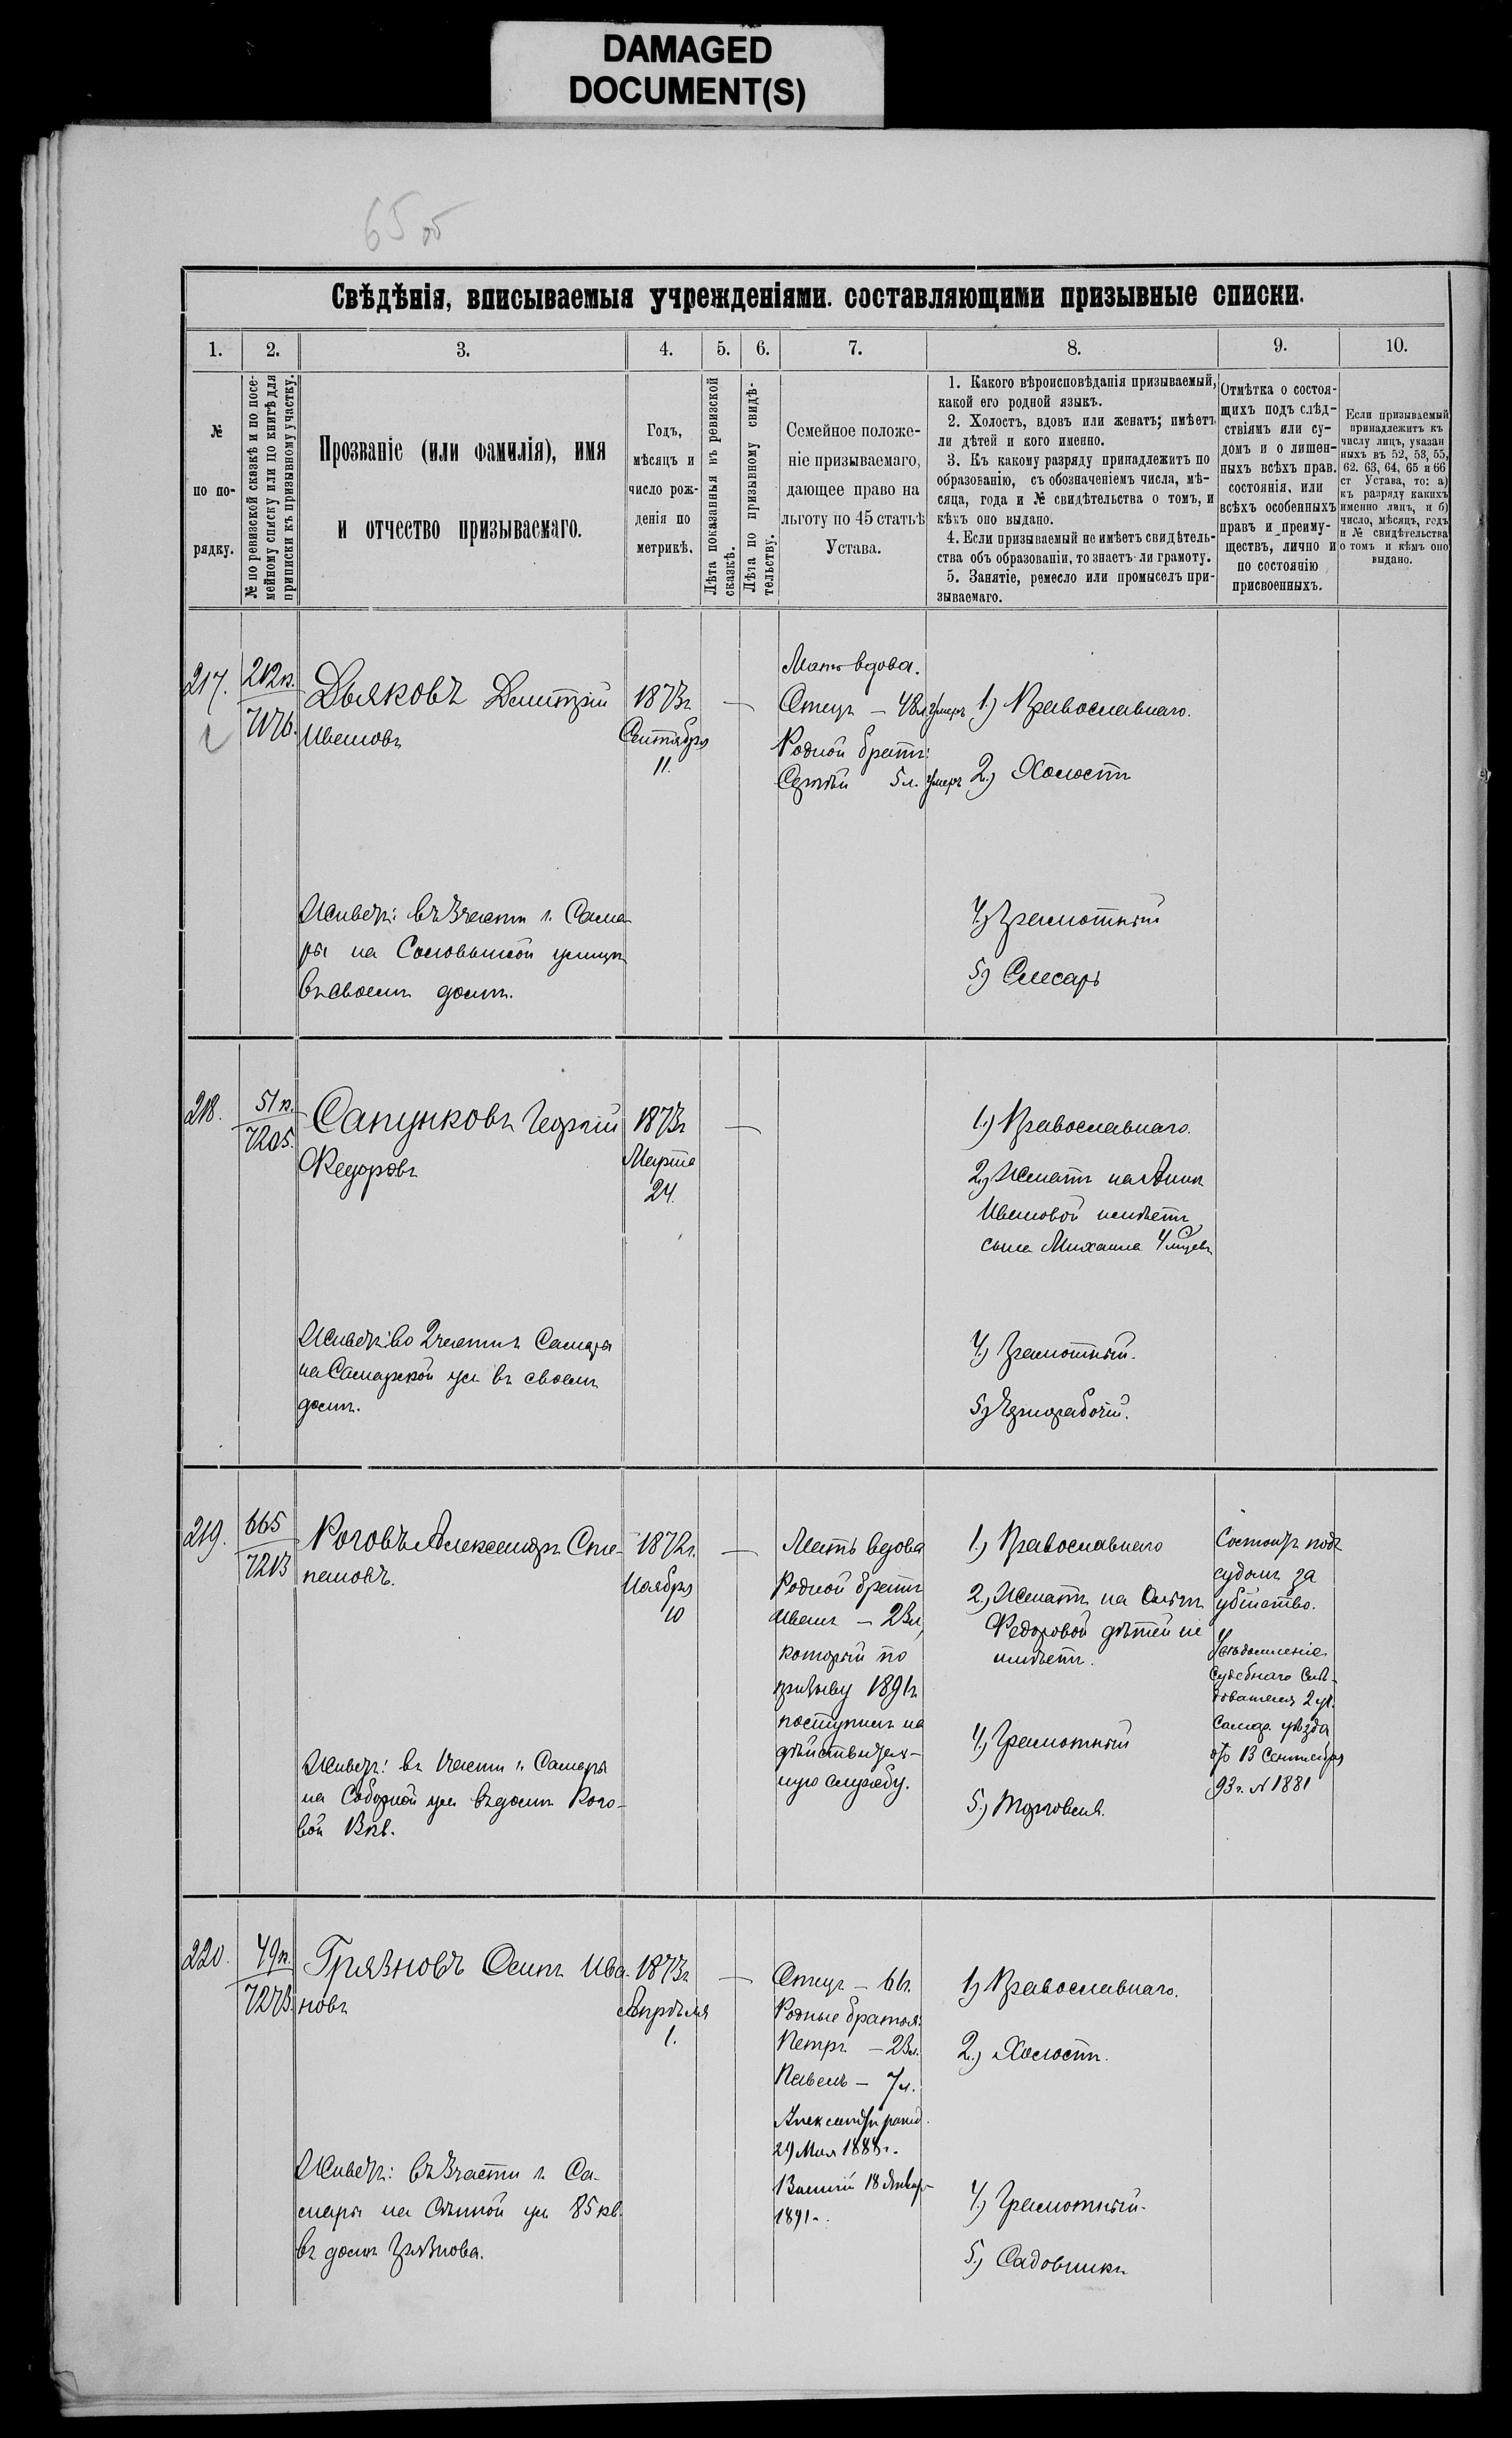 DAMAGED
DOCUMENT(S)
65 об
Свѣдѣнія, вписываемыя учрежденіями. составляющими призывные списки.
1. 2. 3. 4. 5. 6. 7. 8. 9. 10.
№
по по-
рядку.
№ по ревизской сказкѣ и по посе-
мейному списку или по книгѣ для
приписки къ призывному участку.
Прозваніе (или фамилія), имя
и отчество призываемаго.
Годъ,
мѣсяцъ и
число рож-
денія по
метрикѣ.
Лѣта показанныя въ ревизской
сказкѣ.
Лѣта по призывному свидѣ-
тельству.
Семейное положе-
ніе призываемаго,
дающее право на
льготу по 45 статьѣ
Устава.
1. Какого вѣроисповѣданія призываемый,
какой его родной языкъ.
2. Холостъ, вдовъ или женатъ; имѣетъ
ли дѣтей и кого именно.
3. Къ какому разряду принадлежитъ по
образованію, съ обозначеніемъ числа, мѣ-
сяца, года и № свидѣтельства о томъ, и
кѣмъ оно выдано.
4. Если призываемый не имѣетъ свидѣтель-
ства объ образованіи, то знаетъ ли грамоту.
5. Занятіе, ремесло или промыселъ при-
зываемаго.
Отмѣтка о состоя-
щихъ подъ слѣд-
ствіямъ или су-
домъ и о лишен-
ныхъ всѣхъ прав.
состоянія, или
всѣхъ особенныхъ
правъ и преиму-
ществъ, лично и
по состоянію
присвоенныхъ.
Если призываемый
принадлежитъ къ
числу лицъ, указан
ныхъ въ 52, 53, 55,
62. 63, 64, 65 и 66
ст Устава, то: а)
къ разряду какихъ
именно лицъ, и б)
число, мѣсяцъ, годъ
и № свидѣтельства
о томъ и кѣмъ оно
выдано.
217.
212п.
7176.
Дьяковъ Дмитрій
Ивановъ
1873г
Сентября
11.
—
Мать вдова.
Отецъ — 48л умеръ
Родной братъ:
Сергѣй 5л. умеръ
1.) Православнаго.
2.) Холостъ
4.) Грамотный
5) Слесарь
Живетъ: въ 3 части г. Сама-
ры на Соловьиной улицѣ
въ своемъ домѣ.
218.
51п.
7205.
Сапунковъ Георгій
Федоровъ
1873г
Марта
24.
—
1.) Православнаго.
2.) Женатъ на Аннѣ
Ивановой имѣетъ
сына Михаила 4 мѣсяцевъ
4.) Грамотный.
5) Чернорабочій.
Живетъ: во 2 части г. Самары
на Самарской ул въ своемъ
домѣ.
219.
665
7213
Роговъ Александръ Сте-
пановъ.
1872г.
Ноября
10
—
Мать вдова
Родной братъ
Иванъ — 23л,
который по
призыву 1891г
поступилъ на
дѣйствитель-
ную службу.
1.) Православнаго
2.) Женатъ на
Федоровой дѣтей не
имѣетъ.
4.) Грамотный
5.) Торговля.
Состоитъ подъ
судомъ за
убійство.
Увѣдомленіе
Судебнаго Слѣ-
дователя 2 уч.
Самар. уѣзда
отъ 13 Сентября
93 г. № 1881
Живетъ: въ 1 части г. Самары
на Соборной ул въ домѣ Рого-
вой 13 кв.
220.
49п.
7273.
Грязновъ Осипъ Ива-
новъ
1873г
Апрѣля
1.
—
Отецъ — 61г.
Родные братья:
Петръ — 23л.
Павелъ — 7л.
Александръ родил.
29 Мая 1888 г.
Василій 18 Январ-
1891 г.
1) Православнаго.
2.) Холостъ.
4.) Грамотный.
5.) Садовникъ
Живетъ: въ 3 части г. Са-
мары на Сѣнной ул 85 кв.
въ домѣ Грязнова.